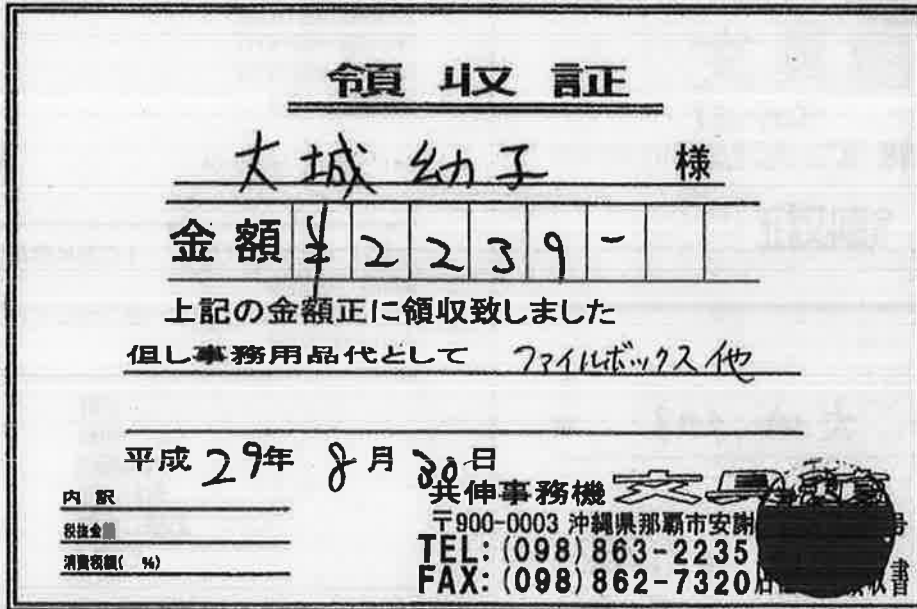 領収証
大城 幼子 様
金額 ¥2239-
上記の金額正に領収致しました
但し事務用品代として ファイルボックス他
平成 29年 8月 30日
内訳
税抜金
消費税額( %)
共伸事務機 文具
〒900-0003 沖縄県那覇市安謝 号
TEL:(098)863-2235
FAX:(098)862-7320 収書